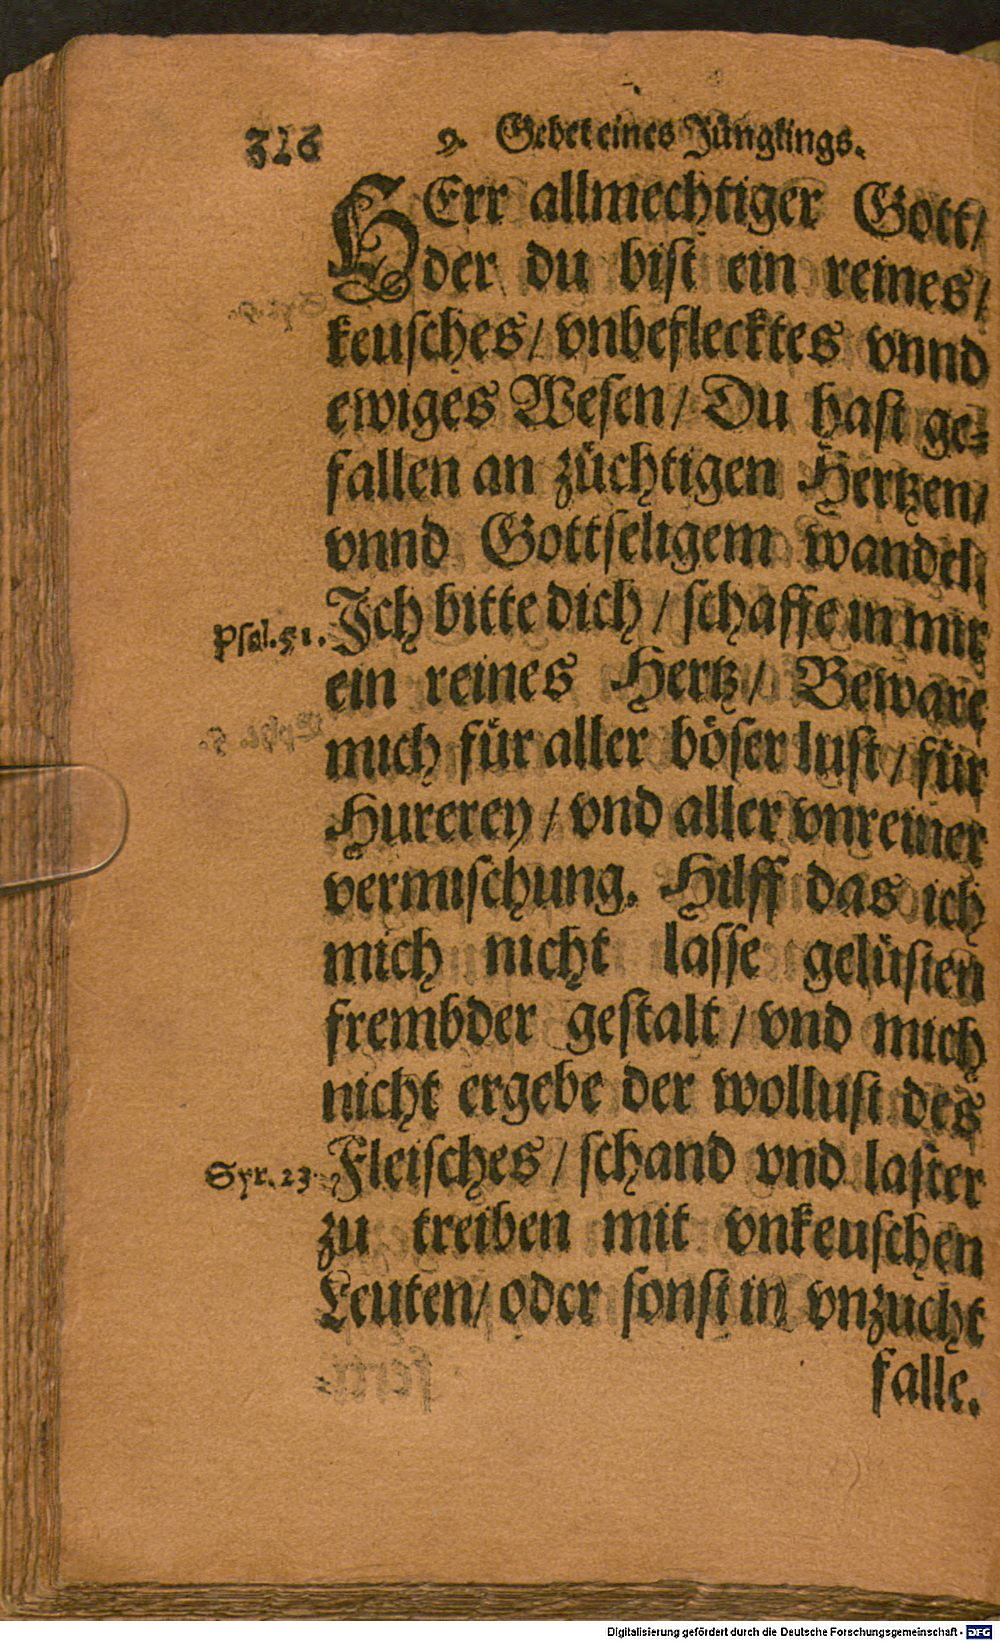 326
9. Gebet eines Jünglings.
HErr allmechtiger Gott/
der du bist ein reines/
keusches/ vnbeflecktes vnnd
ewiges Wesen/ Du hast ge-
fallen an züchtigen Hertzen/
vnnd Gottseligem wandel.
Psal. 51. Ich bitte dich/ schaffe in mir
ein reines Hertz/ Beware
mich für aller böser lust/ für
Hurerey/ vnd aller vnreiner
vermischung. Hilff das ich
mich nicht lasse gelüsten
frembder gestalt/ vnd mich
nicht ergebe der wollust des
Syr. 23. Fleisches/ schand vnd laster
zu treiben mit vnkeuschen
Leuten/ oder sonst in vnzucht
falle.
Digitalisierung gefördert durch die Deutsche Forschungsgemeinschaft - DFG